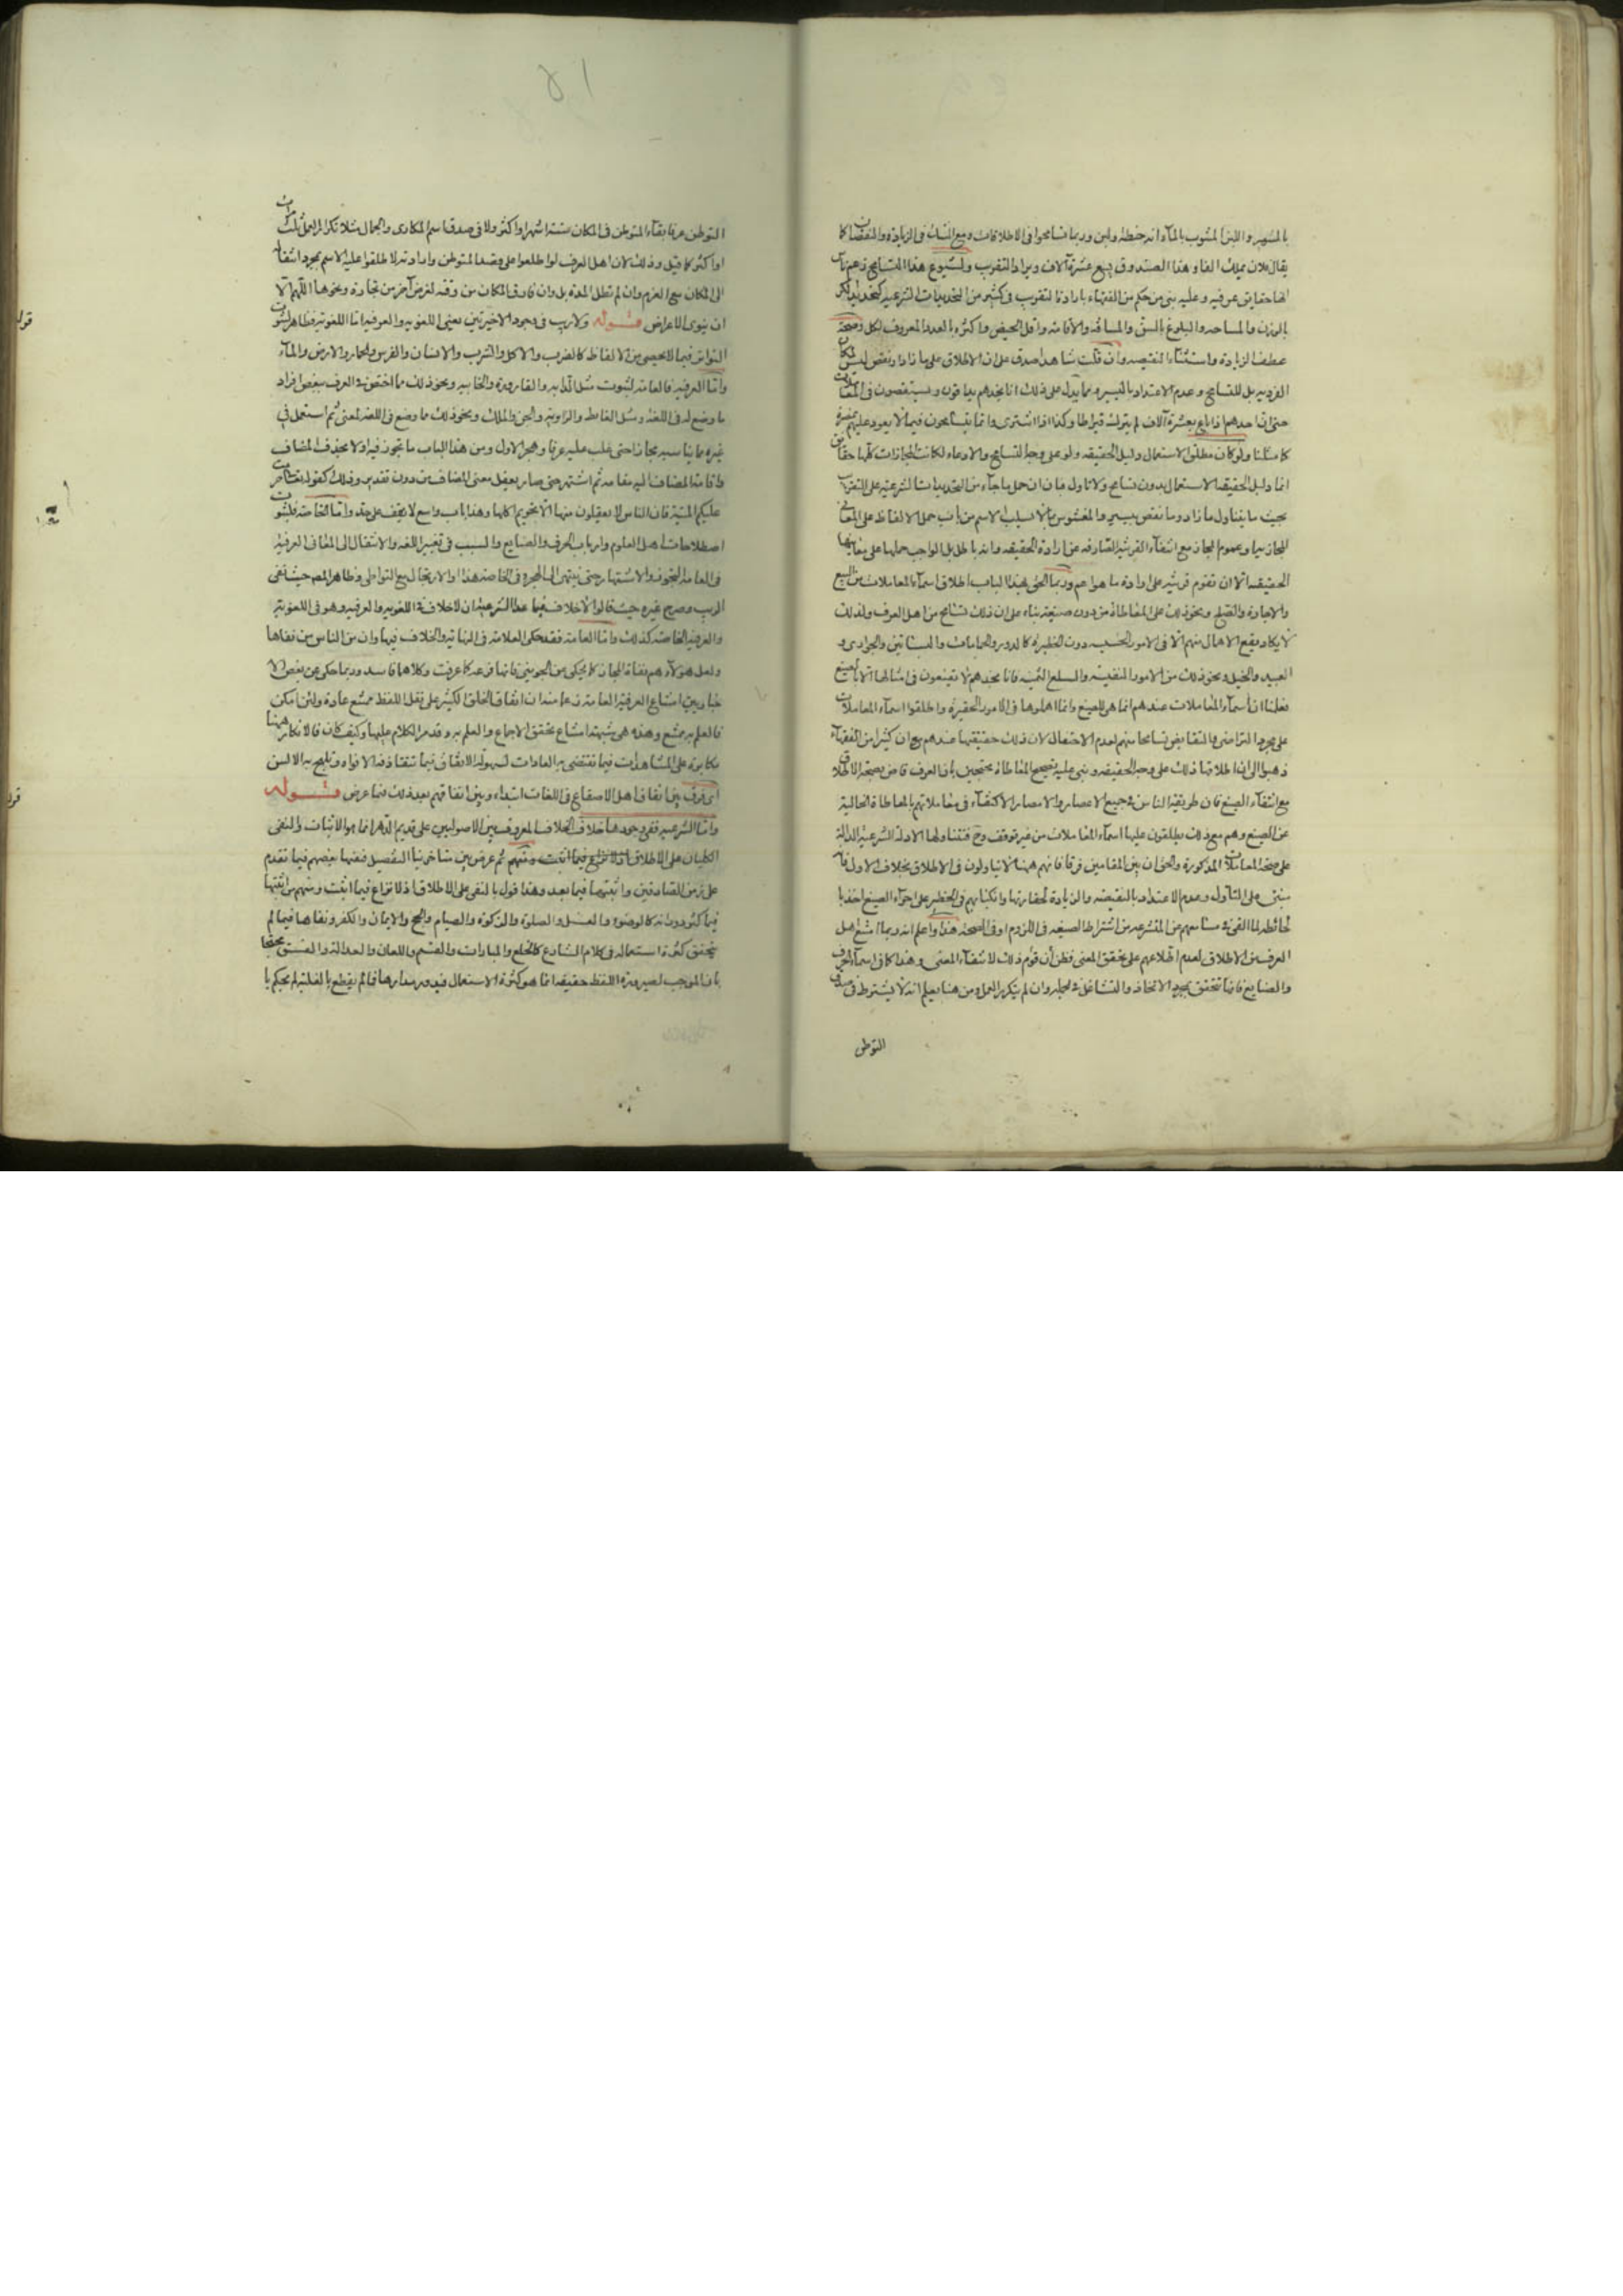 بالشوب واللبن المشوب بالمآء انه حنطة ولبن وربما تسامحوا فى الاطلاقات ومع التبات فى الزيادة والنقصان كما
يقال فلان يملك الفا وهذا الصندوق يسع عشرة آلاف ويراد التقريب ولشيوع هذا التسامح زعم
انها حقايق عرفيه وعليه بنى من حكم من الفقهاء بارادة التقريب فى كثير من التحديدات الشرعيه كتحديد الكر
بالوزن والمساحه والبلوغ بالسن والمسافه والاقامه واقل الحيض واكثره بالعدد المعروف لكل وصحة
عطف الزيادة واستثنآء النقيصه وان قلت شاهدا صدق على ان الاطلاق على ما زاد او نقص ليس لمكان
الفرديه بل للتسامح وعدم الاعتداد باليسير ومما يدل على ذلك انا نجدهم يداقون ويستقصون فى المعاملات
حتى ان احدهم اذا باع بعشرة آلاف لم يترك قيراطا وكذا اذا اشترى وانما يتسامحون فيما لا يعود عليهم بمضرة
كما مثلنا ولو كان مطلق الاستعمال دليل الحقيقه ولو على وجه التسامح والادعاء لكانت المجازات كلها حقايق
انما دليل الحقيقه الاستعمال بدون تسامح ولا تاول فان ان حمل ما جآء من التحديدات الشرعيه على التقريب
بحيث ما يتناول ما زاد وما نقص بيسير والمغشوش بما لا يسلب الاسم من باب حمل الالفاظ على المعانى
المجازيه او عموم المجاز مع انتفآء القرينه الصارفه عن ارادة الحقيقه وانه باطل بل الواجب حملها على معانيها
الحقيقه الا ان تقوم قرينه على ارادة ما هو اعم وربما الحق بهذا الباب اطلاق اسمآء المعاملات من البيع
والاجارة والصلح ونحو ذلك على المعاطاة من دون صيغه بناء على ان ذلك تسامح من اهل العرف ولذلك
لا يكاد يقع الاهمال منهم الا فى الامور الخسيسه دون الخطيرة كالدور والحمامات والبساتين والجوارى و
العبيد والخيل ونحو ذلك من الامور النفيسه والسلع الثمينه فانا نجدهم لا يقنعون فى امثالها الا بالصيغ
فعلمنا ان اسمآء المعاملات عندهم انما هى للصيغ وانما اهملوها فى الامور الحقيرة واطلقوا اسمآء المعاملات
على مجرد التراضى والتقابض تسامحا منهم لعدم الاحتفال لا ان ذلك حقيقتها عندهم مع ان كثيرا من الفقهآء
ذهبوا الى ان اطلاقها ذلك على وجه الحقيقه وبنى عليه تصحيح المعاطاة محتجين بان العرف قاض بصحة الاطلاق
مع انتفآء الصيغ فان طريقة الناس فى جميع الاعصار والامصار الاكتفآء فى معاملاتهم بالمعاطاة الخاليه
عن الصيغ وهم مع ذلك يطلقون عليها اسمآء المعاملات من غير توقف وح فتتناولها الادلة الشرعيه الدالة
على صحة المعاملات المذكورة والحق ان بين المقامين فرقا فانهم ههنا لا يتاولون فى الاطلاق بخلاف الاول فانه
مبنى على التاول وعدم الاعتداد بالنقيصه والزيادة لحقارتها وانكبابهم فى الخطير على اجرآء الصيغ اخذ با
لحائطه لما القى فى مسامعهم من المتشرعه من اشتراط الصيغه فى اللزوم او فى الصحه هذا واعلم انه ربما امتنع اهل
العرف من الاطلاق لعدم اطلاعهم على تحقق المعنى فظن ان قوام ذلك لانتفآء المعنى وهذا كما فى اسمآء الحرف
والصنايع فانها تتحقق بمجرد الاتخاذ والتشاغل فى الجمله وان لم يتكرر العمل ومن هنا يعلم انه لا يشترط فى صدق
التوطن
التوطن عرفا بقآء المتوطن فى المكان ستة اشهر او اكثر ولا فى صدق اسم المكارى والجمال مثلا تكرار العمل ثلث مرات
او اكثر كما قيل وذلك لان اهل العرف لو اطلعوا على قصد المتوطن وارادته لاطلقوا عليه الاسم بمجرد انتقاله
الى المكان مع العزم وان لم تطل المدة بل وان فارق المكان من وقته لغرض آخر من تجارة ونحوها اللهم الا
ان ينوى الاعراض قوله ولا ريب فى وجود الاخيرتين يعنى اللغويه والعرفيه اما اللغويه فظاهر لثبوت
التواتر فيما لا يحصى من الالفاظ كالضرب والاكل والشرب والانسان والفرس والحمار والارض والمآء
واما العرفيه فالعامه لثبوت مثل الدابه والقارورة والخابيه ونحو ذلك مما اختص فى العرف ببعض افراد
ما وضع له فى اللغة ومثل الغايط والراويه والجن والملك ونحو ذلك مما وضع فى اللغه لمعنى ثم استعمل فى
غيره مما يناسبه مجازا حتى غلب عليه عرفا وهجر الاول ومن هذا الباب ما تجوز فيه اولا بحذف المضاف
واقامة المضاف اليه مقامه ثم اشتهر حتى صار يعقل معنى المضاف من دون تقدير وذلك كقوله تعالى حرمت
عليكم الميتة فان الناس لا يعقلون منها الا تحريم اكلها وهذا باب واسع لا يقف على حد واما الخاصه فلثبوت
اصطلاحات اهل العلوم وارباب الحرف والصنايع والسبب فى تغيير اللغه والانتقال الى المعانى العرفيه
فى العامه التجوز والاشتهار حتى ينتهى الى الهجر وفى الخاصه هذا او الارتجال مع التواطى وظاهر المصـ حيث نفى
الريب وصرح غيره حيث قالوا لا خلاف فيما عدا الشرعيه ان لا خلاف فى اللغويه والعرفيه وهو فى اللغويه
والعرفيه الخاصه كذلك واما العامه فقد حكى العلامه فى النهايه الخلاف فيها وان من الناس من نفاها
ولعل هؤلآء هم نفاة المجاز كما يحكى عن الجوينى فانها فرعه كما عرفت وكلاهما فاسد وربما حكى عن بعض الا
خباريين امتناع العرفيه العامه زعما منه ان اتفاق الخلق الكثير على نقل اللفظ ممتنع عادة ولئن امكن
فالعلم به ممتنع وهذه هى شبهته امتناع تحقق الاجماع والعلم به وقد مر الكلام عليها وكيف كان فالانكار ههنا
مكابرة على المشاهدات فيما تقتضى به العادات لسهولة الاتفاق فيما تتقاذفه الافواه وتلهج به الالسن
اى فرق بين اتفاق اهل الاصقاع فى اللغات ابتداء وبين اتفاقهم بعد ذلك فيما عرض قوله
واما الشرعيه ففى وجودها خلاف الخلاف المعروف بين الاصوليين على قديم الدهر انما هو الاثبات والنفى
الكليان على الاطلاق ثم عرف بين متاخرينا التفصيل فنفاها بعضهم فيما تقدم
على زمن الصادقين واثبتها فيما بعد وهذا قول بالنفى على الاطلاق اذ لا نزاع فيما اثبت ومنهم من اثبتها
فيما كثر دورانه كالوضوء والغسل والصلوة والزكوة والصيام والحج والايمان والكفر ونفاها فيما لم
يتحقق كثرة استعماله فى كلام الشارع كالخلع والمبارات والقسم واللعان والعدالة والفسق محتجا
بان الموجب لصيرورة اللفظ حقيقه انما هو كثرة الاستعمال فيدور مدارها فما لم يقطع بالغلبة لم يحكم با
قوله
قوله